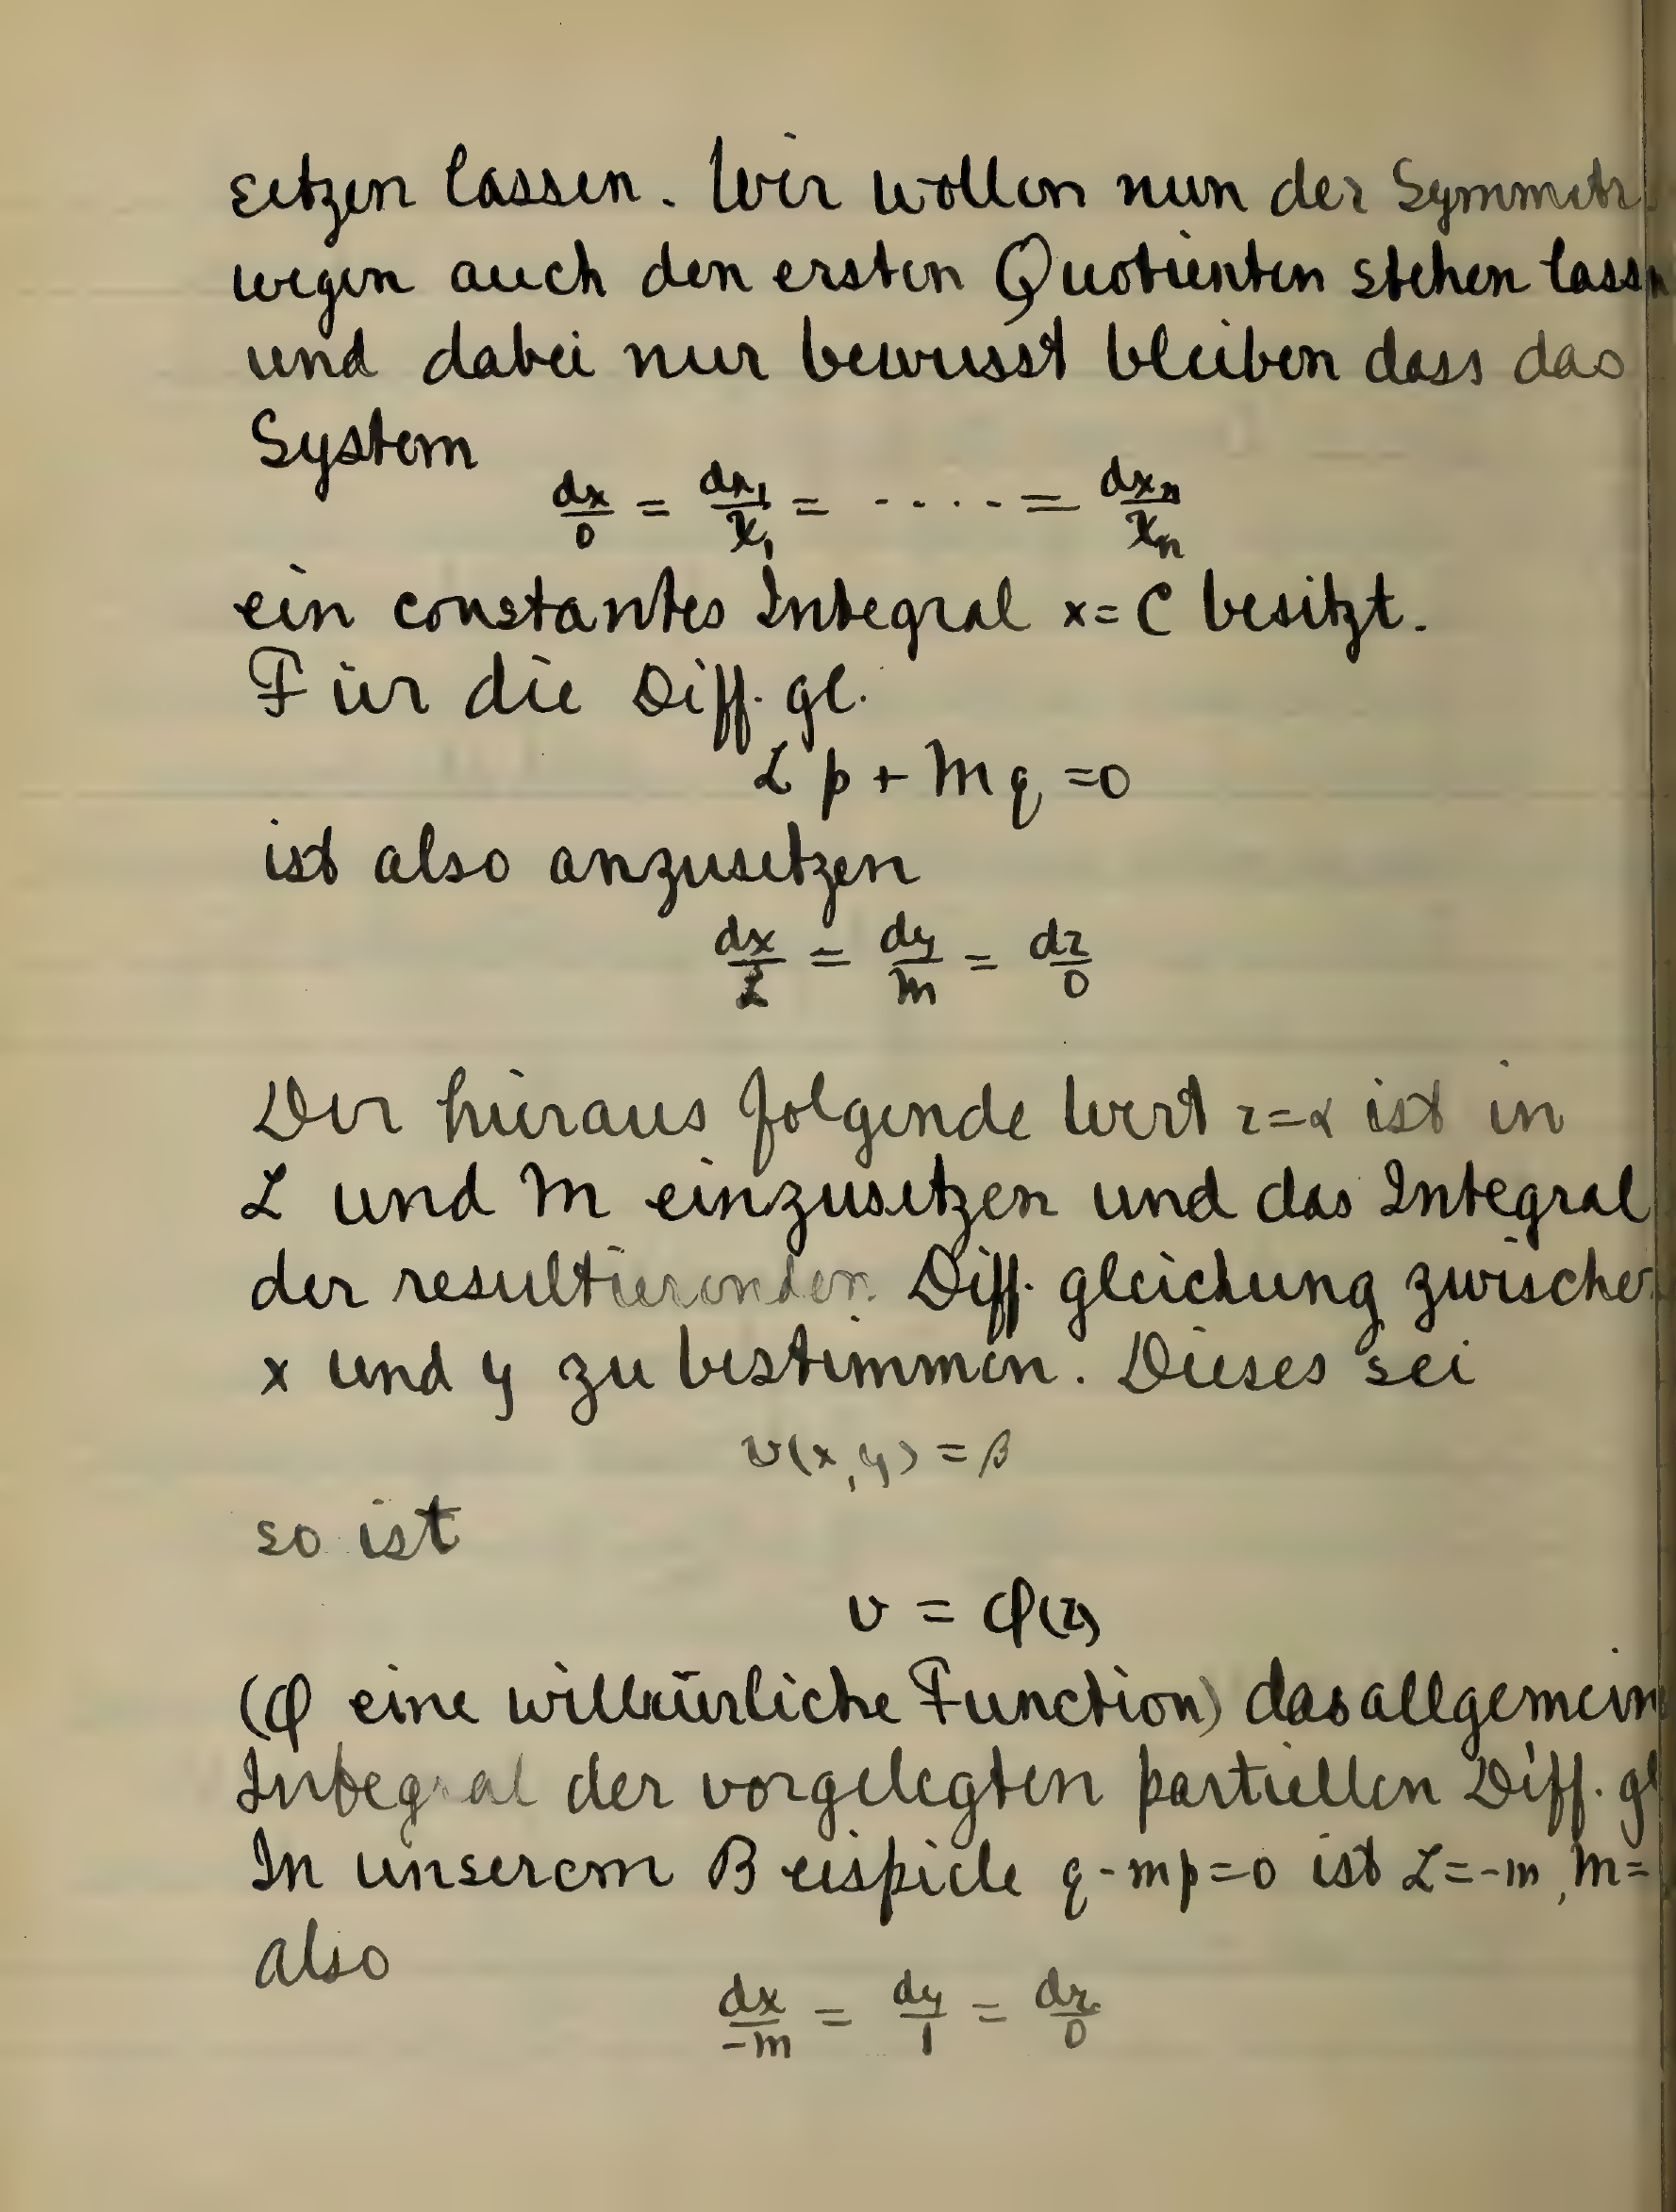 setzen lassen. Wir wollen nun der Symmetr
wegen auch den ersten Quotienten stehen lassn
und dabei nur bewusst bleiben dass das
System
dx/0 = dx₁/X₁ = ..... = dxₙ/Xₙ
ein constantes Integral x=C besitzt.
Für die Diff. gl.
Lp + Mq = 0
ist also anzusetzen
dx/L = dy/M = dz/0
Der hieraus folgende Wert z=α ist in
L und M einzusetzen und das Integral
der resultierenden Diff. gleichung zwischen
x und y zu bestimmen. Dieses sei
v(x,y) = β
so ist
v = φ(z)
(φ eine willkürliche Function) das allgemeine
Integral der vorgelegten partiellen Diff. gl
In unserem Beispiele q-mp=0 ist L=-m, M=
also
dx/-m = dy/1 = dz/0